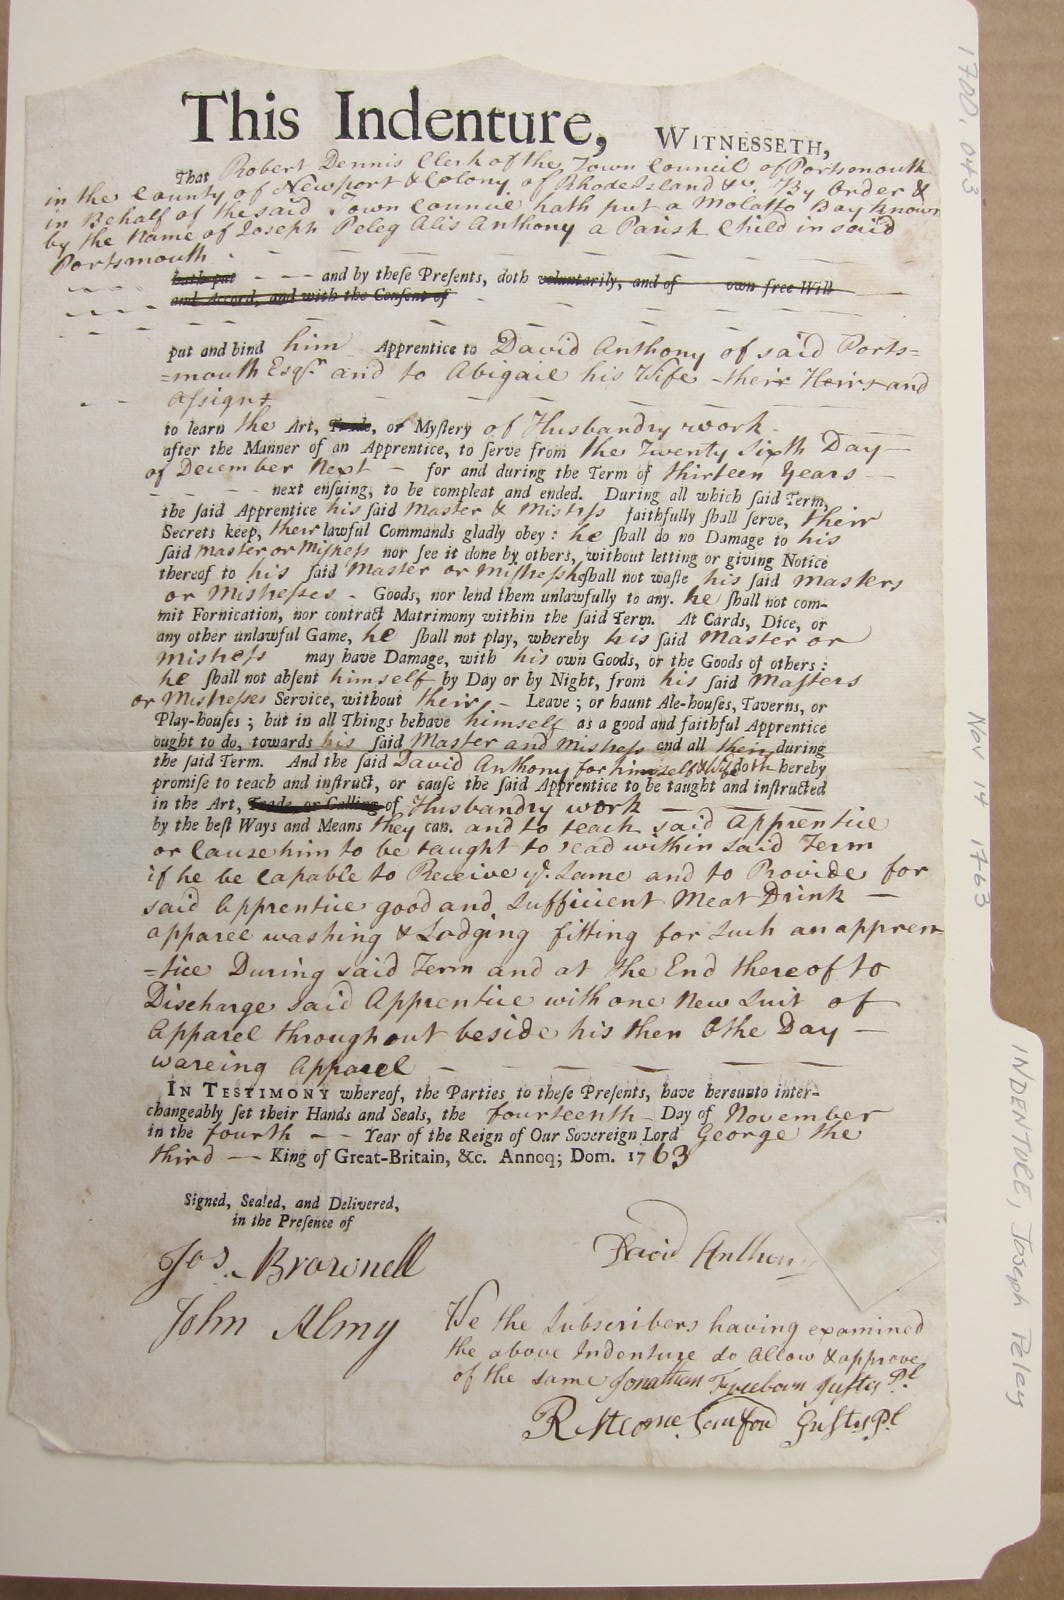 This Indenture, WITNESSETH,
That Robert Dennis Clerk of the Town Council of Portsmouth
in the County of Newport & Colony of Rhode Island &c. By Order &
in Behalf of the said Town Council hath put a Molatto Boy known
by the Name of Joseph Peleg Alis Anthony a Parish Child in said
Portsmouth
hath put - - - and by theſe Preſents, doth voluntarily, and of own free Will
and Accord, and with the Conſent of
put and bind him Apprentice to David Anthony of said Ports=
=mouth Esqr. and to Abigail his Wife their Heirs and
Aſsigns
to learn the Art, Trade, or Myſtery of Husbandry work
after the Manner of an Apprentice, to ſerve from the Twenty Sixth Day
of December Next - for and during the Term of thirteen Years
next enſuing, to be compleat and ended. During all which ſaid Term,
the ſaid Apprentice his ſaid Master & Mistreſs faithfully ſhall ſerve, their
Secrets keep, their lawful Commands gladly obey: he ſhall do no Damage to his
ſaid Master or Mistreſs nor ſee it done by others, without letting or giving Notice
thereof to his ſaid Master or Mistreſs he ſhall not waſte his ſaid Masters
or Mistreſses - Goods, nor lend them unlawfully to any. he ſhall not com-
mit Fornication, nor contract Matrimony within the ſaid Term. At Cards, Dice, or
any other unlawful Game, he ſhall not play, whereby his ſaid Master or
Mistreſs may have Damage, with his own Goods, or the Goods of others:
he ſhall not abſent himself by Day or by Night, from his ſaid Masters
or Mistreſses Service, without their - Leave; or haunt Ale-houſes, Taverns, or
Play-houſes; but in all Things behave himself as a good and faithful Apprentice
ought to do, towards his ſaid Master and Mistreſs and all their during
the ſaid Term. And the ſaid David Anthony for himself & Wife doth hereby
promiſe to teach and inſtruct, or cauſe the ſaid Apprentice to be taught and inſtructed
in the Art, Trade, or Calling of Husbandry work
by the beſt Ways and Means they can. and to teach said Apprentice
or Cause him to be taught to read within Said Term
if he be Capable to Receive ye. Same and to Provide for
said Apprentice good and Sufficient Meat Drink
apparel washing & Lodging fitting for Such an appren=
=tice During said Term and at the End thereof to
Discharge said Apprentice with one New Suit of
Apparel throughout beside his then Othe Day
wareing Apparel
IN TESTIMONY whereof, the Parties to theſe Preſents, have hereunto inter-
changeably ſet their Hands and Seals, the fourteenth Day of November
in the fourth - - Year of the Reign of Our Sovereign Lord George the
third - King of Great-Britain, &c. Annoq; Dom. 1763
Signed, Sealed, and Delivered,
in the Preſence of
Jos. Brownell
John Almy
David Anthony
We the Subscribers having examined
the above Indenture do Allow & approve
of the same Jonathan Freeborn Justis Pe
Restcome Sanford Justis Pe
1700.043
Nov 14 1763
INDENTURE, Joseph Peleg